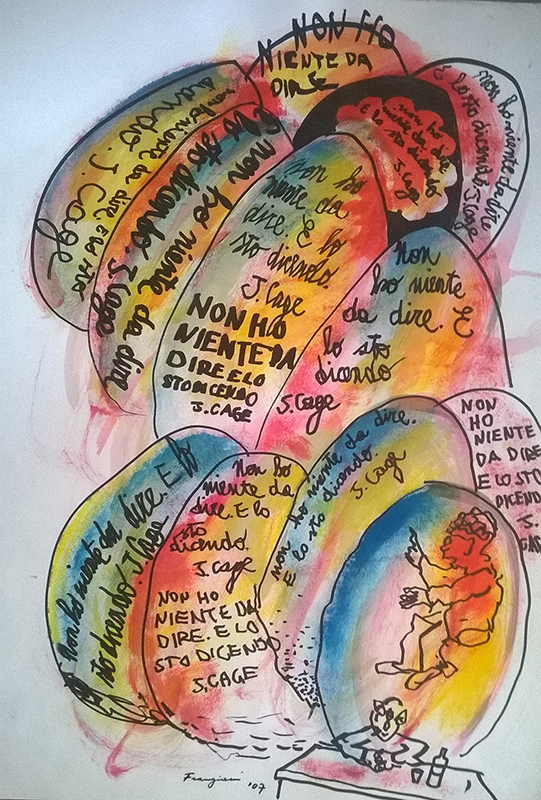 NON HO
NIENTE DA
DIRE
non ho niente da dire
E lo sto dicendo.
J. Cage
non ho
niente da dire
E lo sto
dicendo
J. Cage
non ho niente da dire E lo sto
dicendo. J. Cage
E non ho niente da dire
E lo sto dicendo. J. Cage
non ho
niente da
dire E lo
sto dicendo.
J. Cage
NON HO
NIENTE DA
DIRE E LO
STO DICENDO
J. CAGE
non
ho niente
da dire. E
lo sto
dicendo
J. Cage
non ho niente da dire. E lo
sto dicendo. J. Cage
non ho
niente da
dire. E lo
sto
dicendo.
J. Cage
NON HO
NIENTE DA
DIRE. E LO
STO DICENDO
J. CAGE
non ho niente da dire.
E lo sto dicendo.
J. Cage
NON
HO
NIENTE
DA DIRE
E LO STO
DICENDO
J.
'07